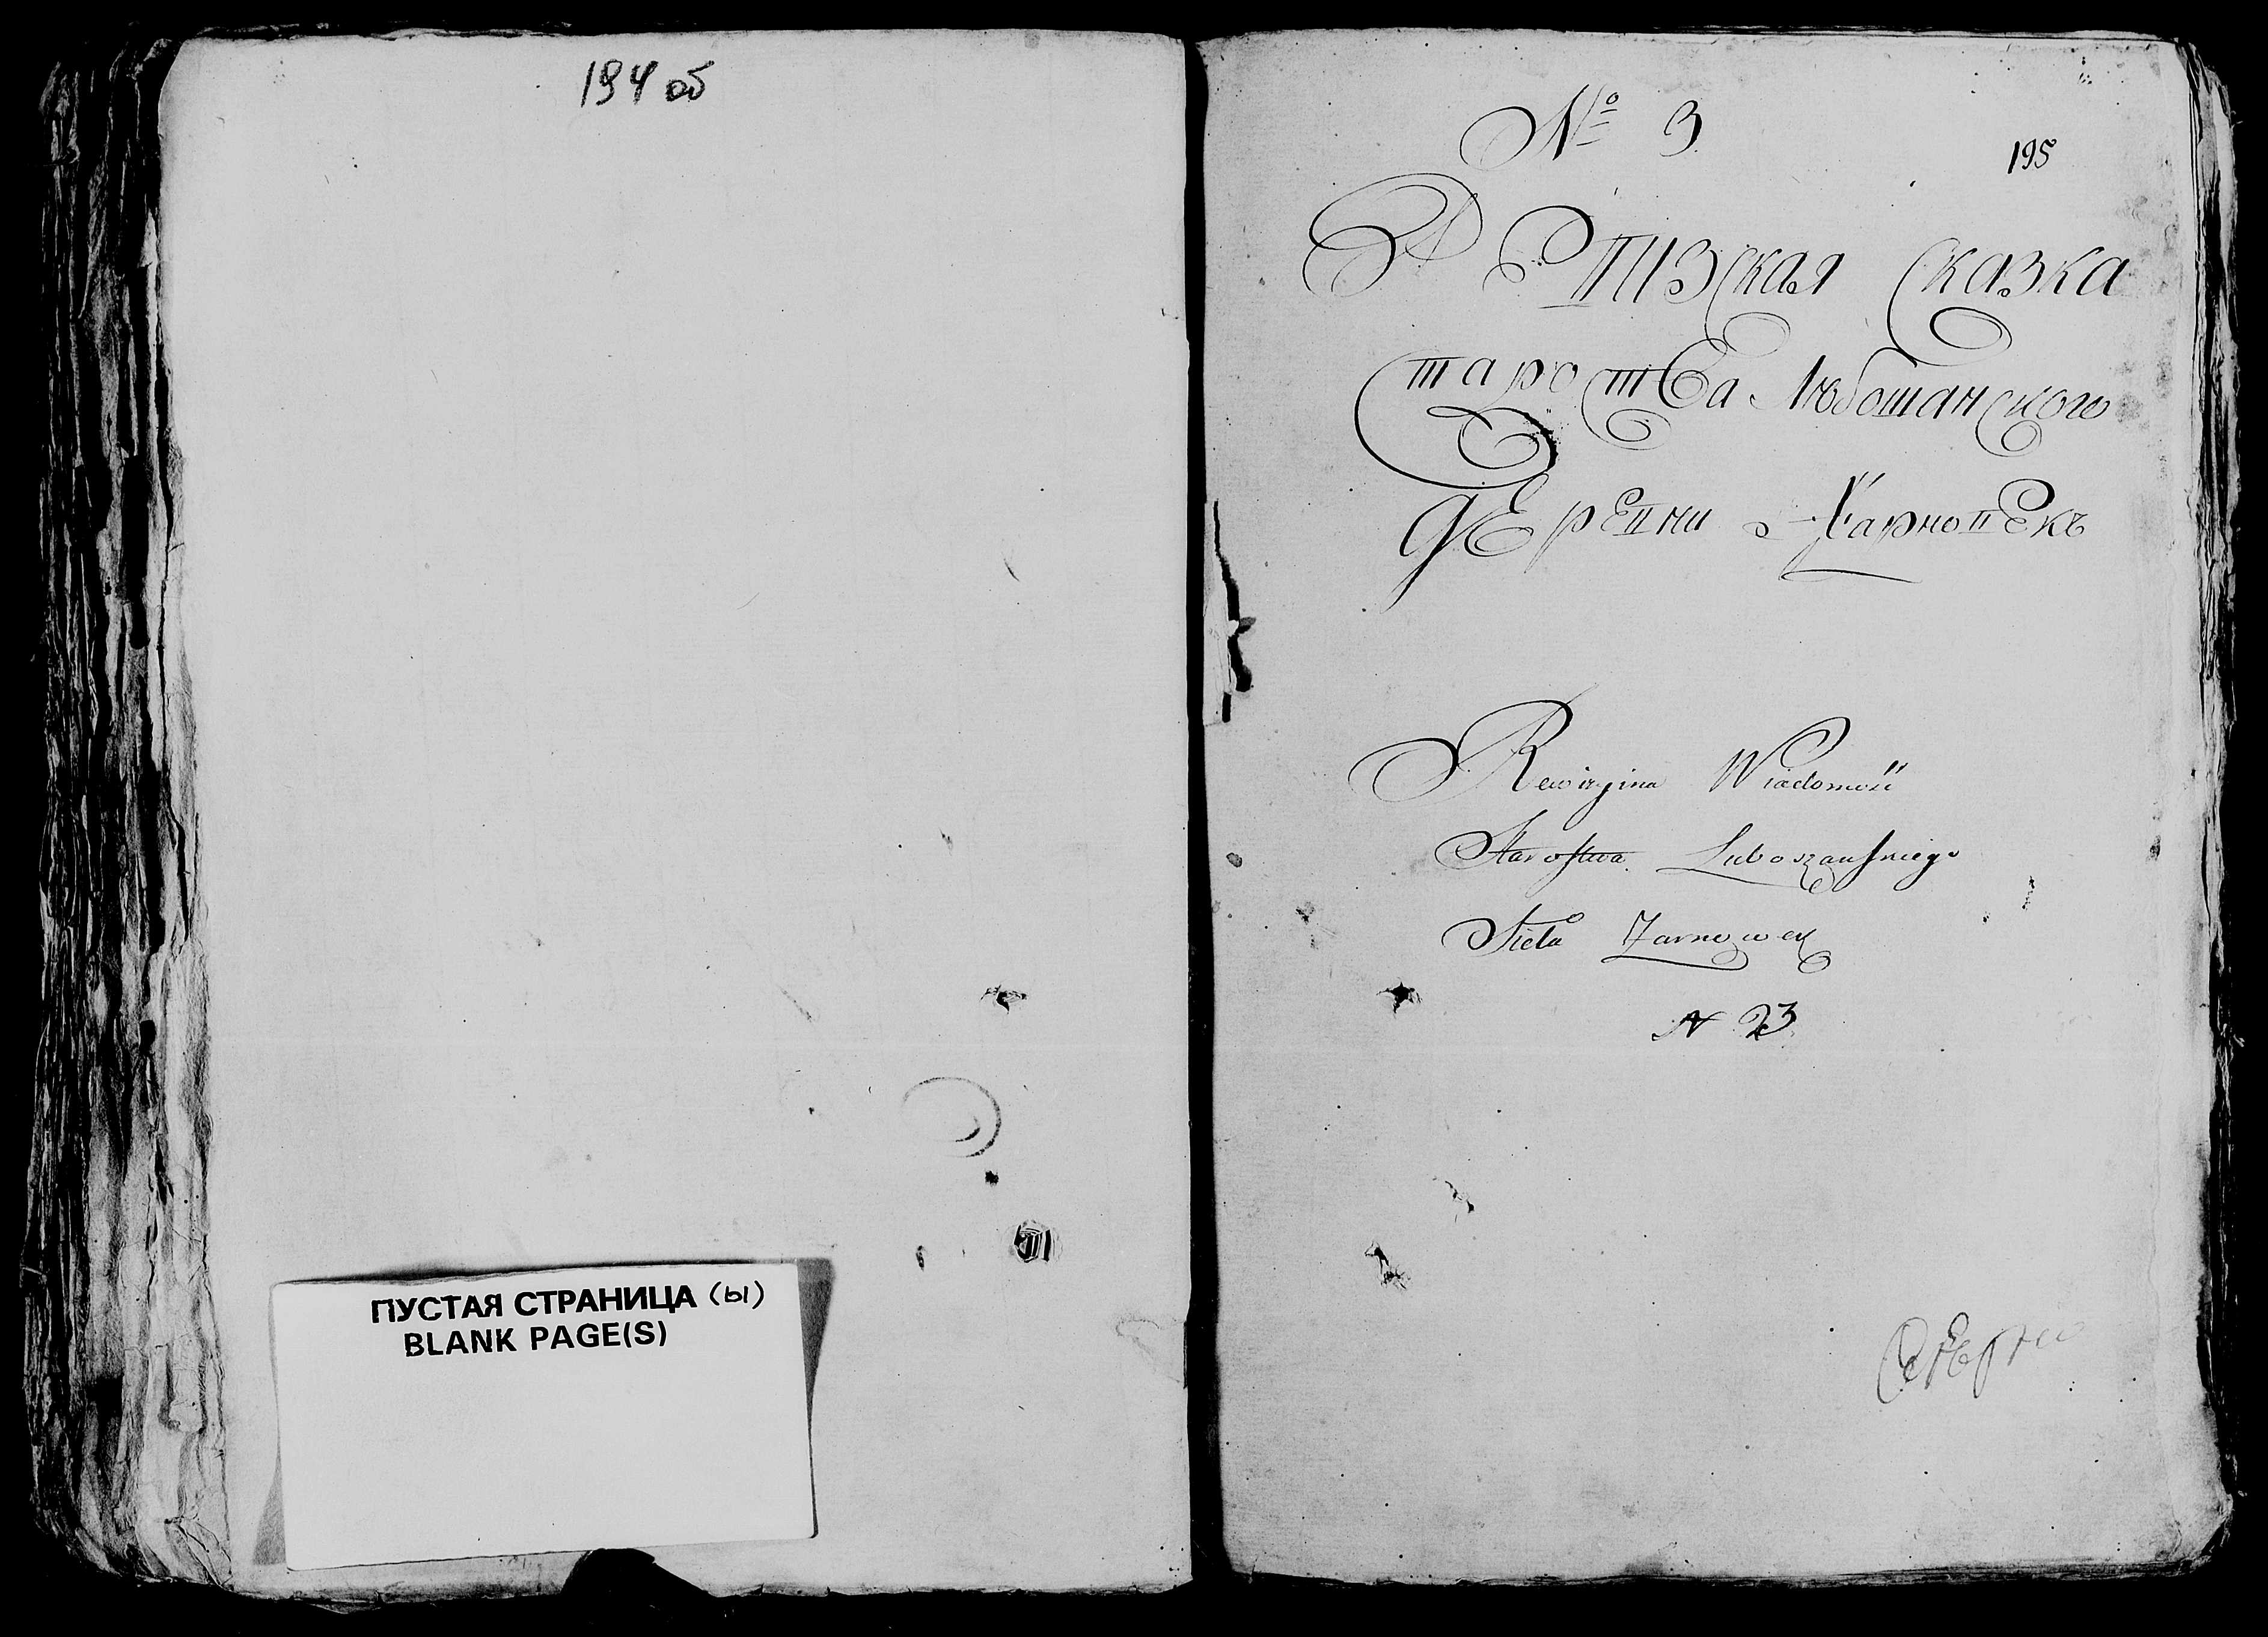 194 об
ПУСТАЯ СТРАНИЦА (ы)
BLANK PAGE(S)
№ 3
195
Ревизская Сказка
Староства Любошанского
деревни Жарновекъ
Rewizyina Wiadomość
Starostwa Luboszanskiego
Sioła Zarnowek
N 23